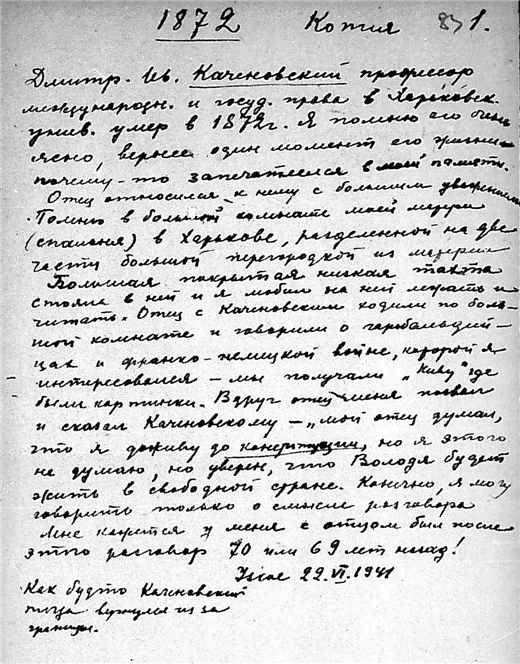 1872 Копия 83) 1.
Дмитр. Ив. Каченовский профессор
международн. и госуд. права в Харьковск.
унив. умер в 1872 г. Я помню его очень
ясно, вернее один момент его жизни
почему-то запечатлелся в моей памяти.
Отец относился к нему с большим уважением
Помню в большой комнате моей матери
(спальня) в Харькове, разделенной на две
части большой перегородкой из материи
Большая покрытая низкая тахта
стояла в ней и я любил на ней лежать и
читать. Отец с Каченовским ходили по боль-
шой комнате и говорили о гарибальдий-
цах и франко-немецкой войне, которой я
интересовался – мы получали „Ниву" где
были картинки. Вдруг отец меня позвал
и сказал Каченовскому – „мой отец думал,
что я доживу до конституции, но я этого
не думаю, но уверен, что Володя будет
жить в свободной стране. Конечно, я могу
говорить только о смысле разговора
Мне кажется у меня с отцом был после
этого разговор 70 или 69 лет назад!
Узкое 22.VI.1941
Как будто Каченовский
тогда вернулся из за
границы.